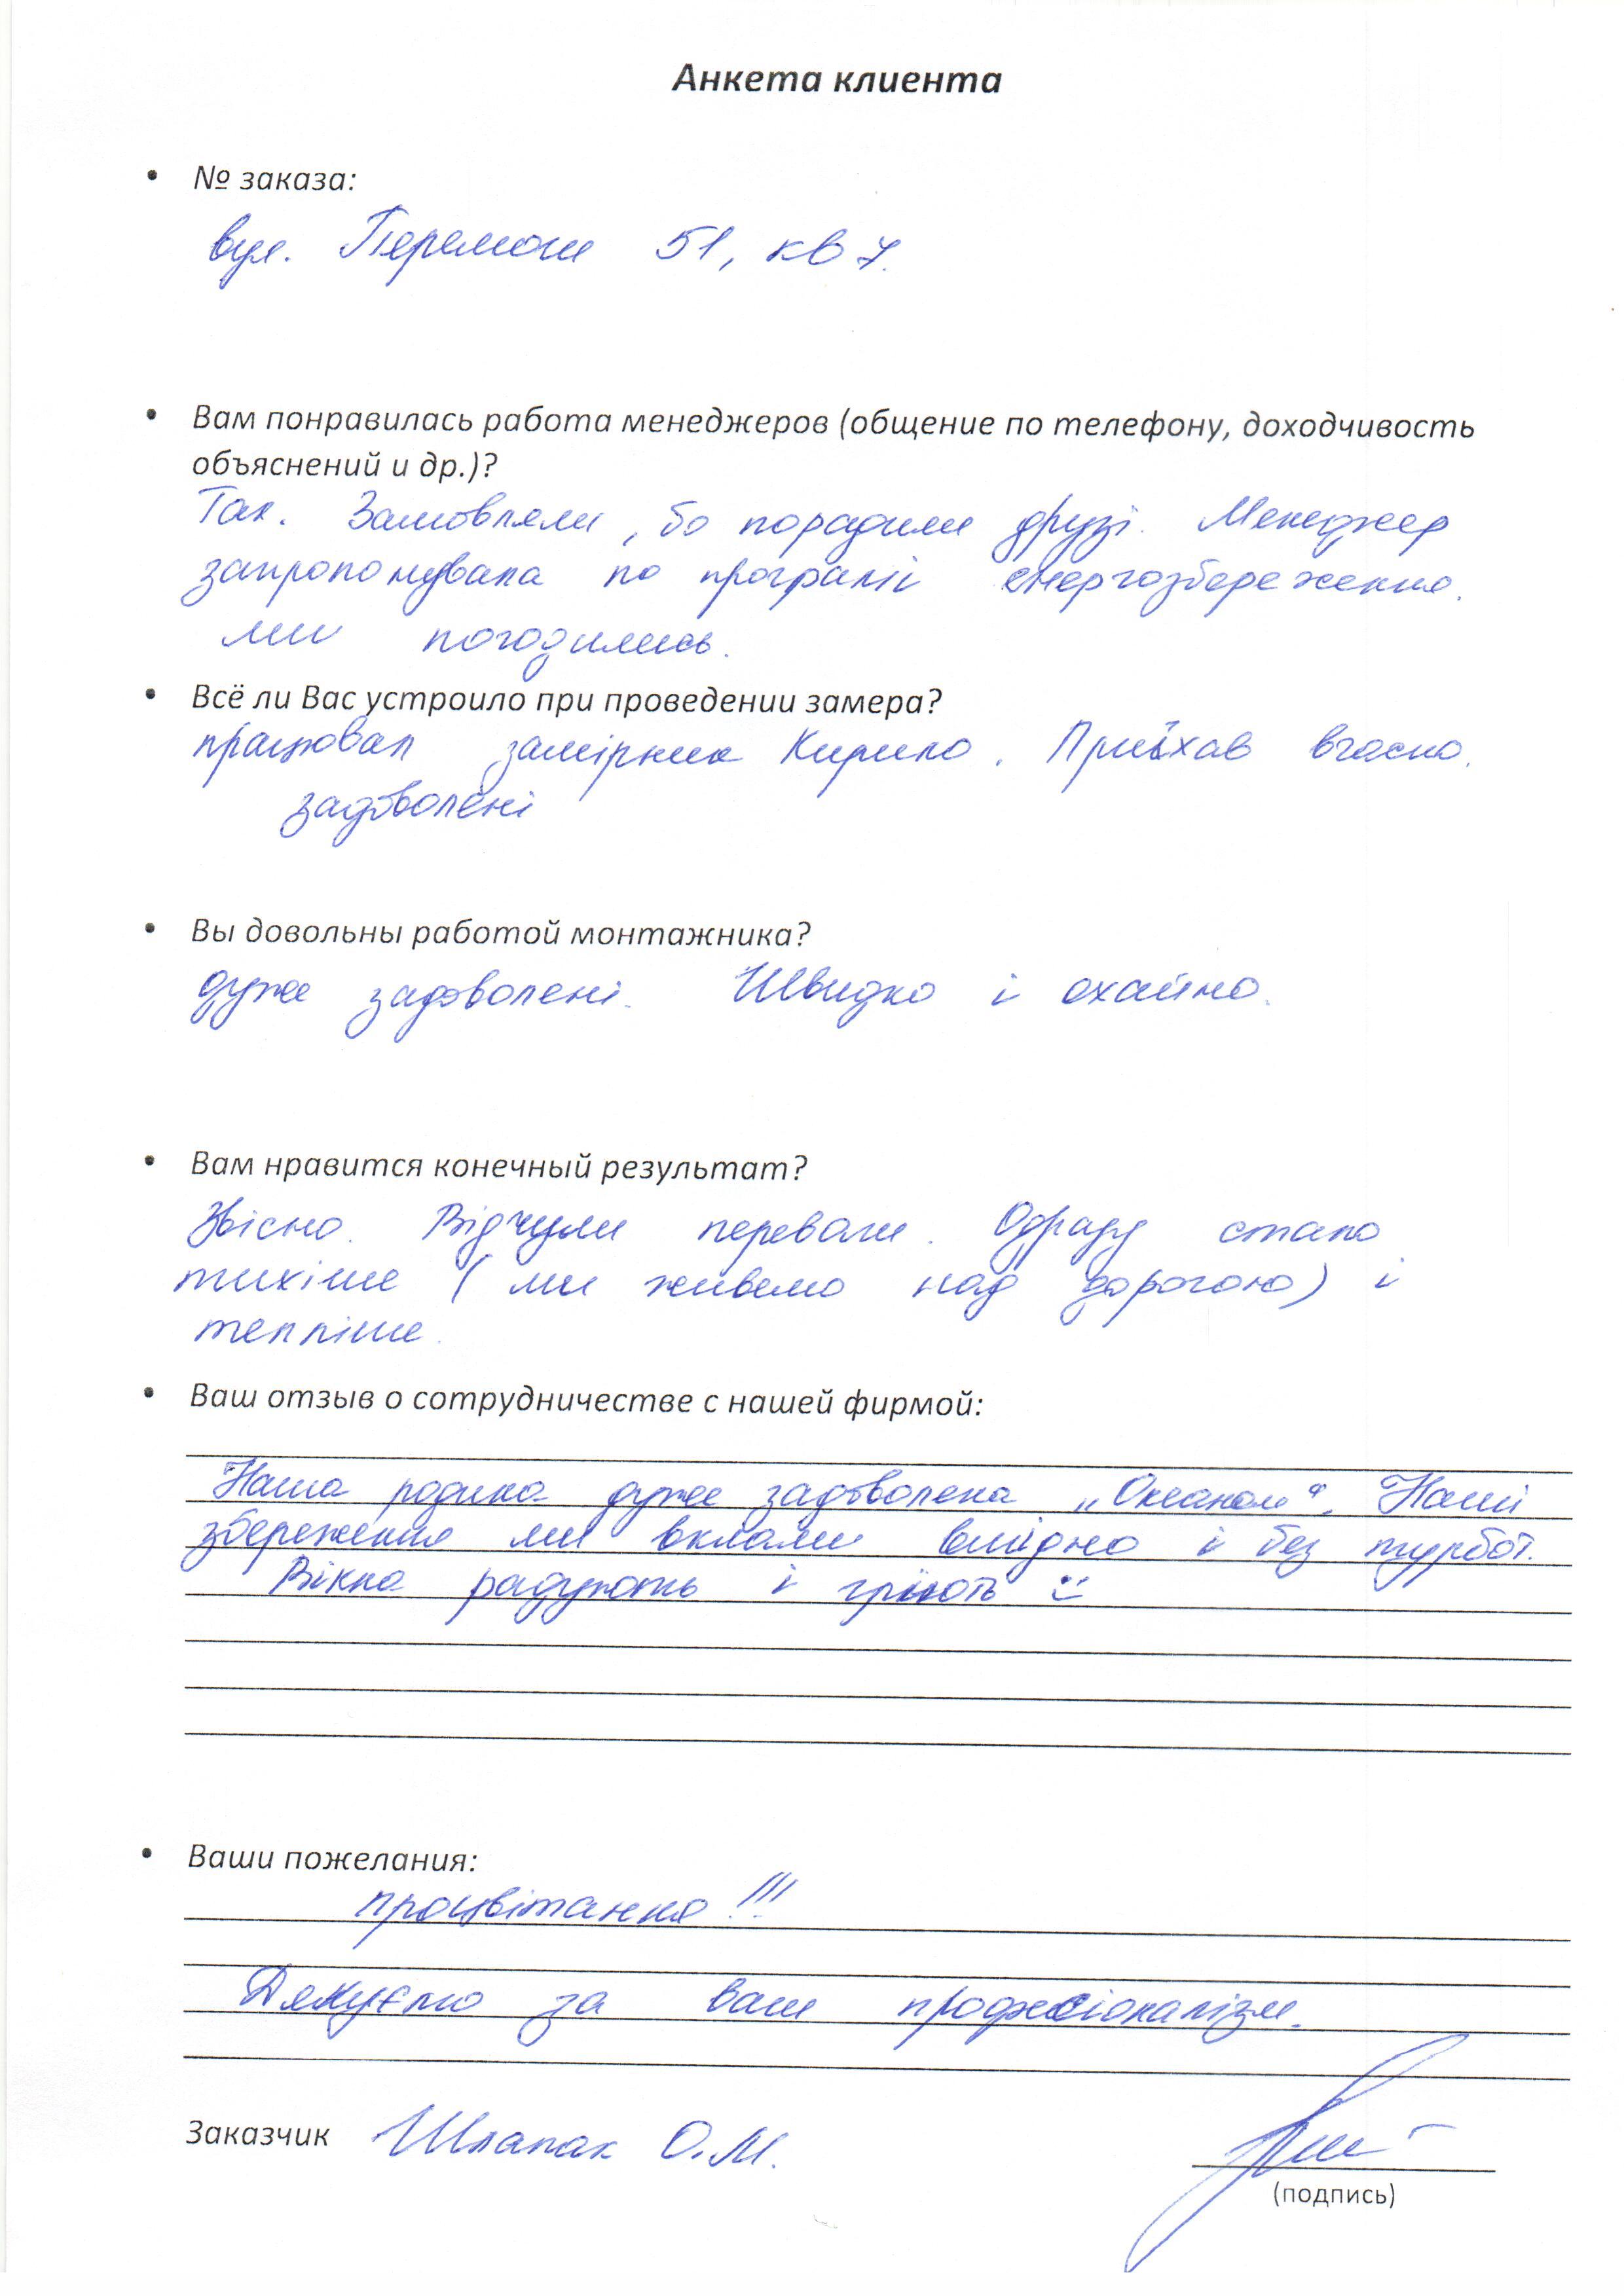 Анкета клиента
• № заказа:
вул. Перемоги 51, кв 7.
• Вам понравилась работа менеджеров (общение по телефону, доходчивость
объяснений и др.)?
Так. Замовляли, бо порадили друзі. Менеджер
запропонувала по програмі енергозбереження.
ми погодились.
• Всё ли Вас устроило при проведении замера?
працював замірник Кирило. Приїхав вчасно.
задоволені
• Вы довольны работой монтажника?
дуже задоволені. Швидко і охайно.
• Вам нравится конечный результат?
Звісно. Відчули переваги. Одразу стало
тихіше (ми живемо над дорогою) і
тепліше.
• Ваш отзыв о сотрудничестве с нашей фирмой:
Наша родина дуже задоволена „Океаном“. Наші
збереження ми вклали вигідно і без турбот.
Вікна радують і гріють :)
• Ваши пожелания:
процвітання!!!
Дякуємо за ваш професіоналізм.
Заказчик Шлапак О.М.
(подпись)